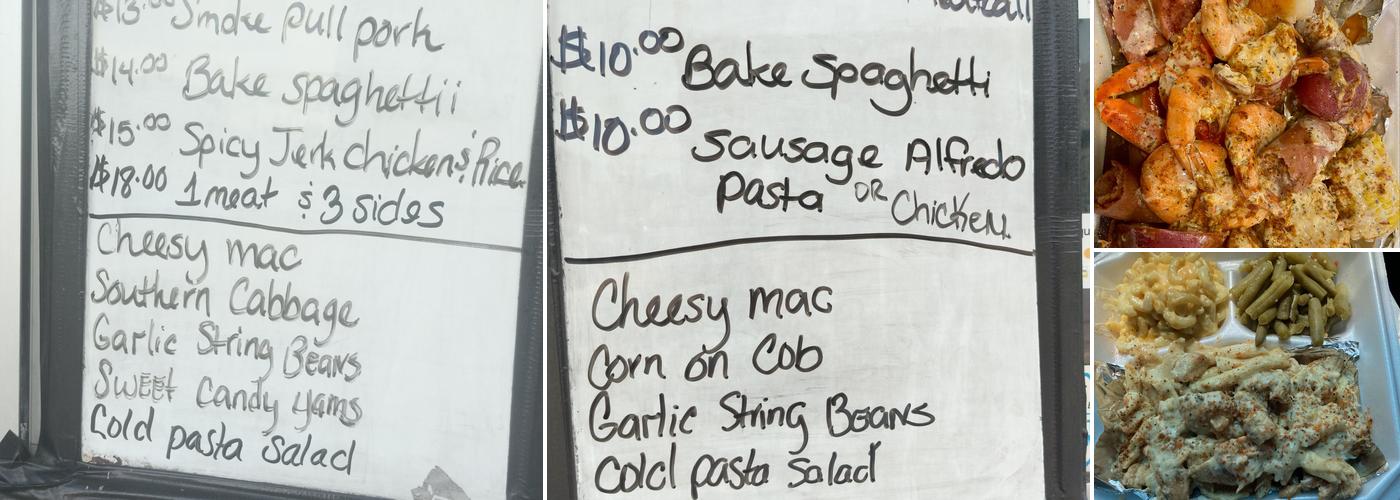 $13.00 Smoke pull pork
$14.00 Bake spaghettii
$15.00 Spicy Jerk chicken & Rice
$18.00 1 meat & 3 sides
Cheesy mac
Southern Cabbage
Garlic String Beans
Sweet Candy yams
Cold pasta salad
$10.00 Bake Spaghetti
$10.00 Sausage Alfredo
Pasta OR Chicken
Cheesy mac
Corn on Cob
Garlic String Beans
Cold pasta salad